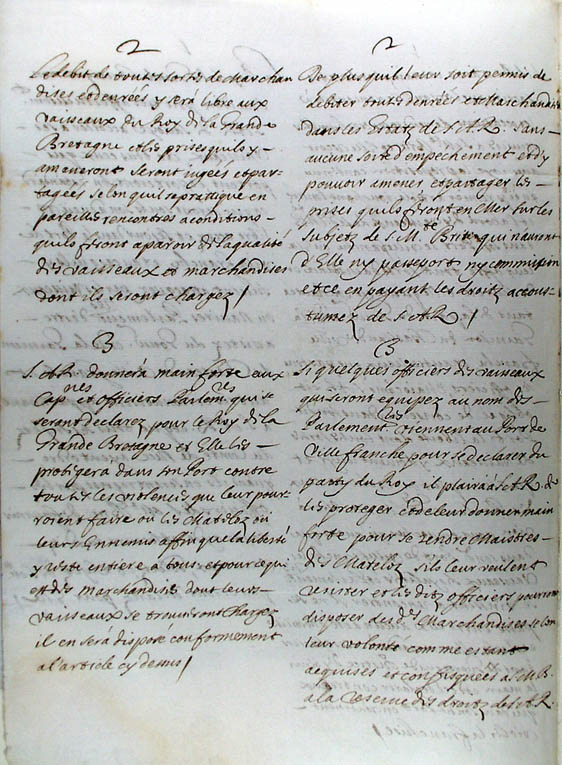 2
Le debit de toutes sortes de Marchan
dises et denrées y será libre aux
vaisseaux du Roy de la Grande
Bretagne et les prises qu'ils y
ameneront seront iugées et par-
tagées selon qu'il se prattique en
pareilles rencontres à conditions
qu'ils feront aparoir de la qualité
des vaisseaux et marchandises
dont ils seront chargez /
3
S. A. R. donnerà main forte aux
Cap.nes et officiers Parlem.res qui se
seront declarez pour le Roy de la
Grande Bretagne et Elle les
protegerá dans son Port contre
toutes les violences que leur pour-
roient faire ou les Mateloz ou
leurs Ennemis affin que la liberté
y reste entière à tous, et pour ce qui
est des marchandises dont leurs
vaisseaux se trouveront chargez
il en será disposé conformement
a l'article cy dessus /
2
De plus qu'il leur soit permis de
debiter toutes denrées et Marchandises
dans les Estatz de S. A. R. sans
aucune sorte d'empechement et d'y
pouvoir amener et partager les
prises qu'ils feront en Mer sur les
subjetz de S. M.te Brit.e qui n'auront
d'Elle ny passeport ny commission
et ce en payant les droitz accous-
tumez de S. A. R. /
3
Si quelques officiers des vaisseaux
qui seront equipez au nom des
Parlement.res viennent au Port de
Ville franche pour se declarer du
party du Roy il plaira a S. A. R. de
les proteger et de leur donner main
forte pour se rendre Maistres
des Mateloz s'ils leur veulent
resister et les ditz officiers pourront
disposer des d.es Marchandises selon
leur volonté comme estant
acquises et confisquées a S. M. B.
a la reserve des droitz de S. A. R.